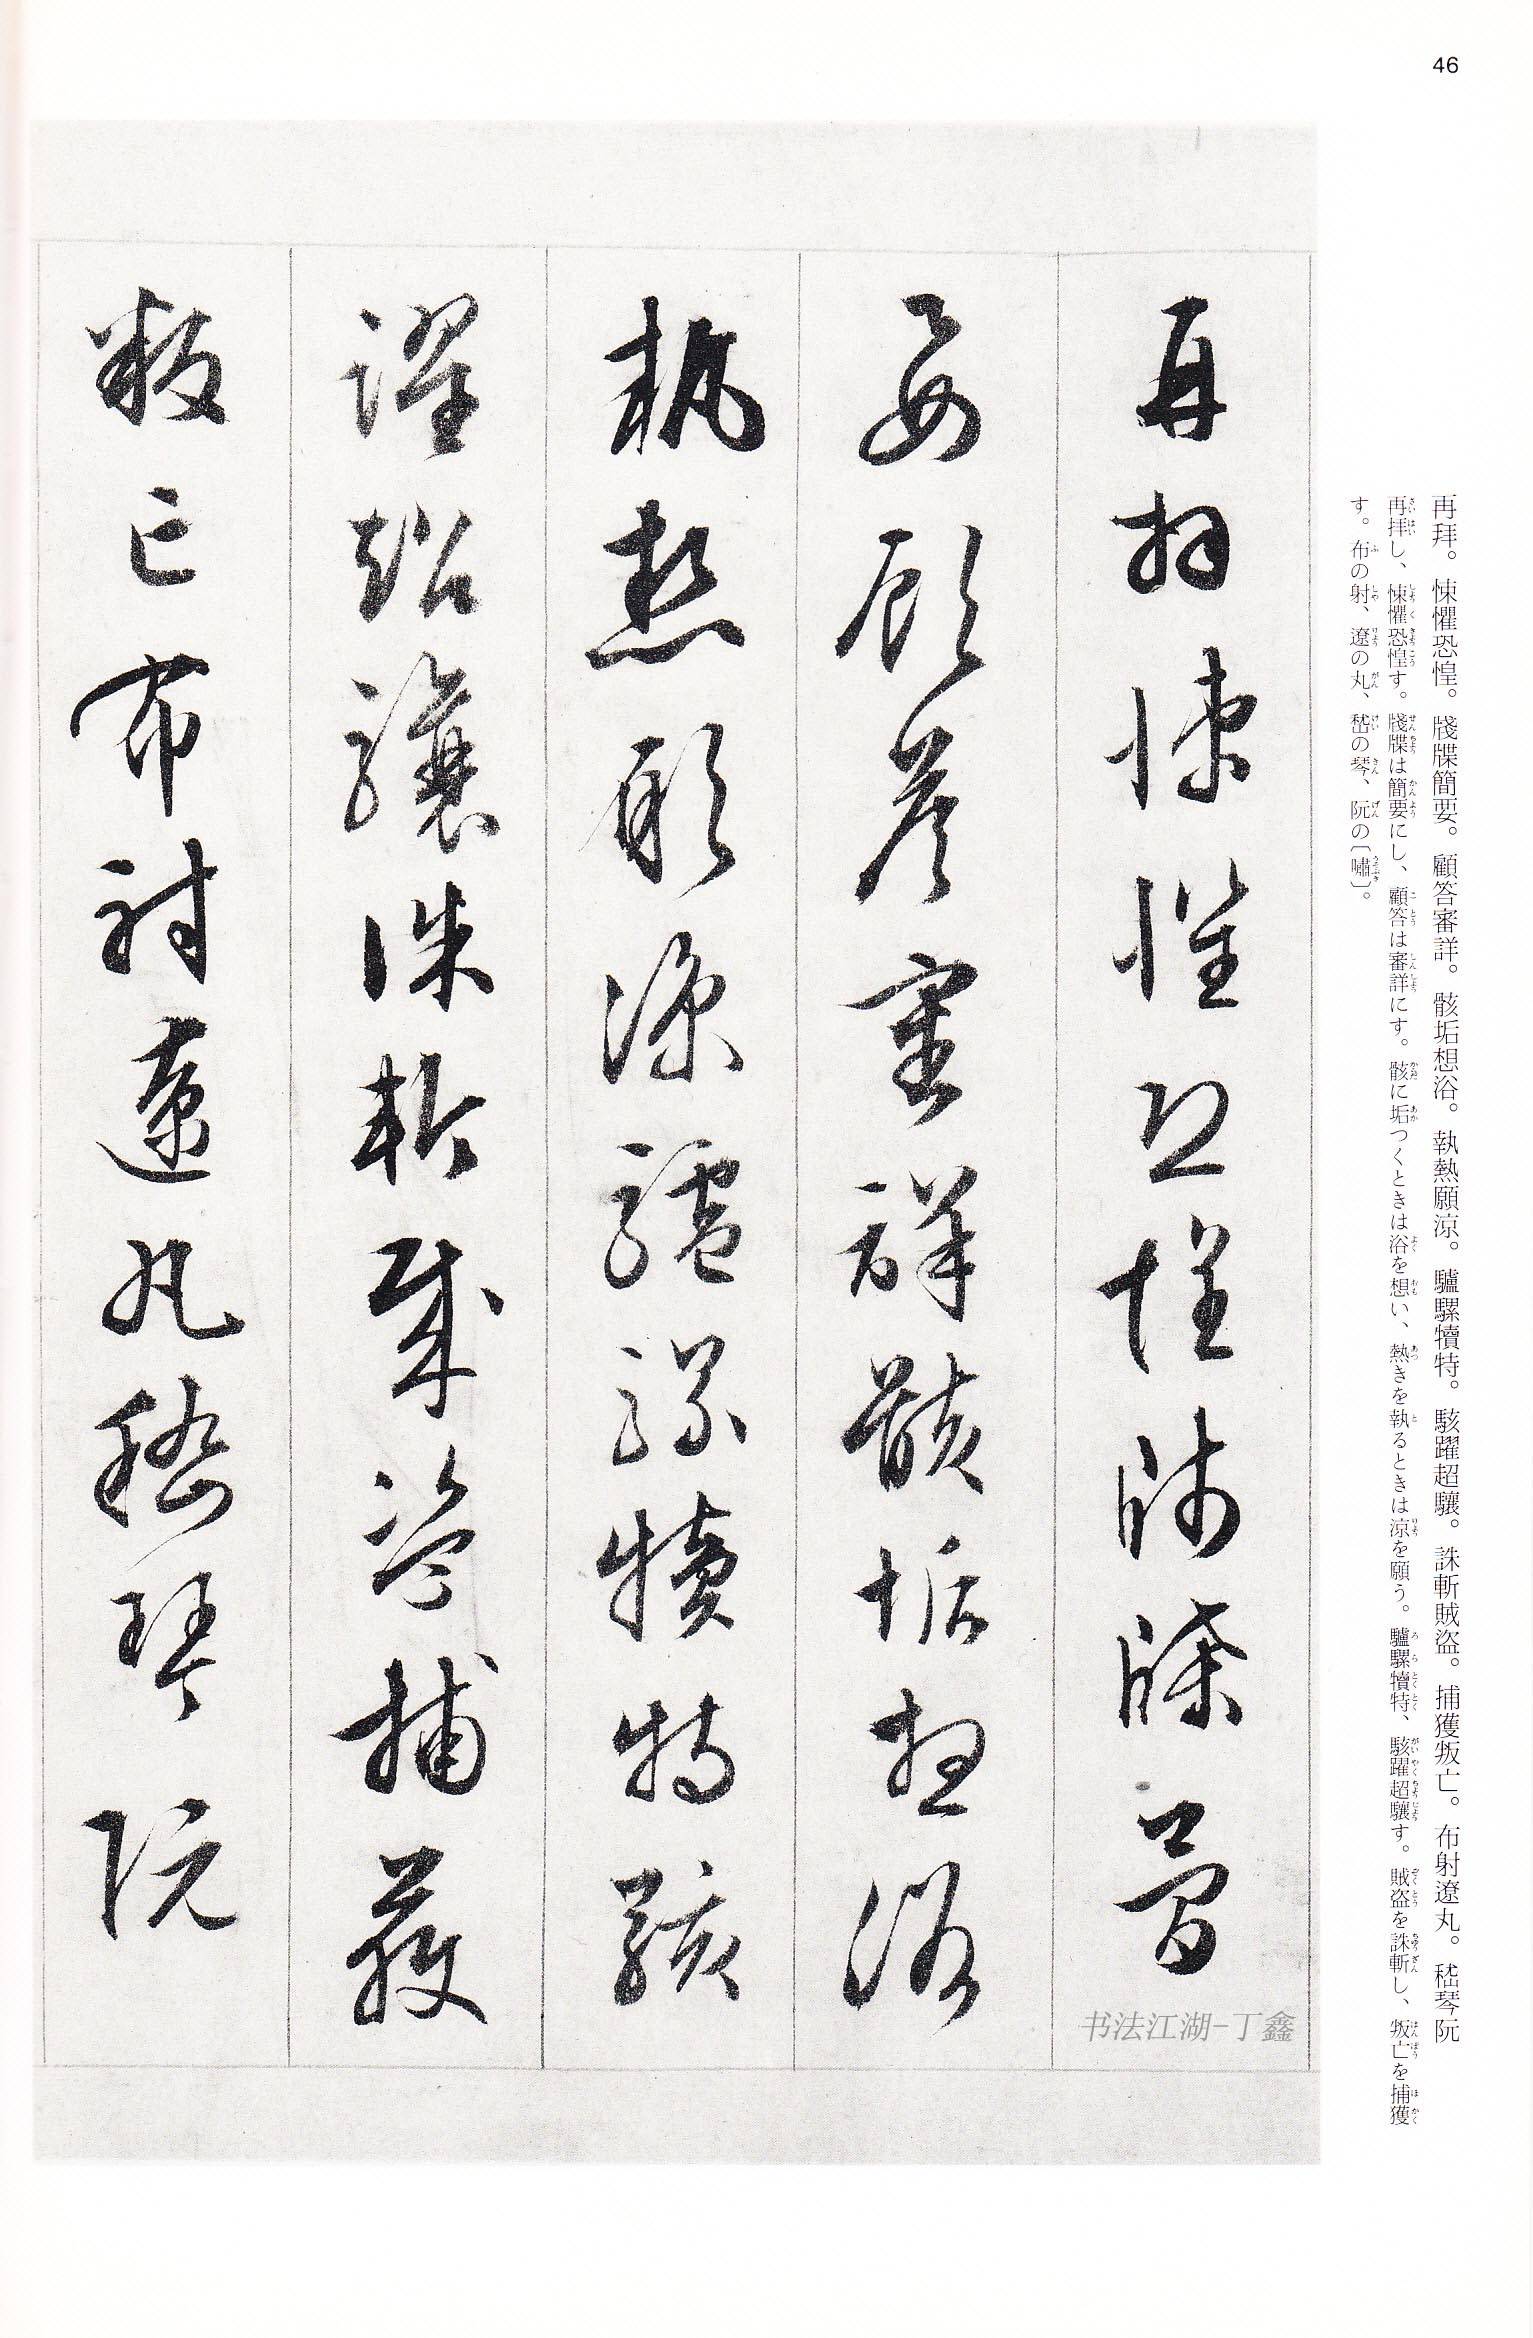 46
再拜。悚懼恐惶。牋牒簡要。顧答審詳。骸垢想浴。執熱願涼。驢騾犢特。駭躍超驤。誅斬賊盗。捕獲叛亡。布射遼丸。嵇琴阮
再拝し、悚懼恐惶す。牋牒は簡要にし、顧答は審詳にす。骸に垢つくときは浴を想い、熱きを執るときは涼を願う。驢騾犢特、駭躍超驤す。賊盗を誅斬し、叛亡を捕獲
す。布の射、遼の丸、嵇の琴、阮の〔嘯〕。
再拜悚懼恐惶牋牒簡
要顧答審詳骸垢想浴
執熱願涼驢騾犢特駭
躍超驤誅斬賊盗捕獲
叛亡布射遼丸嵇琴阮
书法江湖-丁鑫